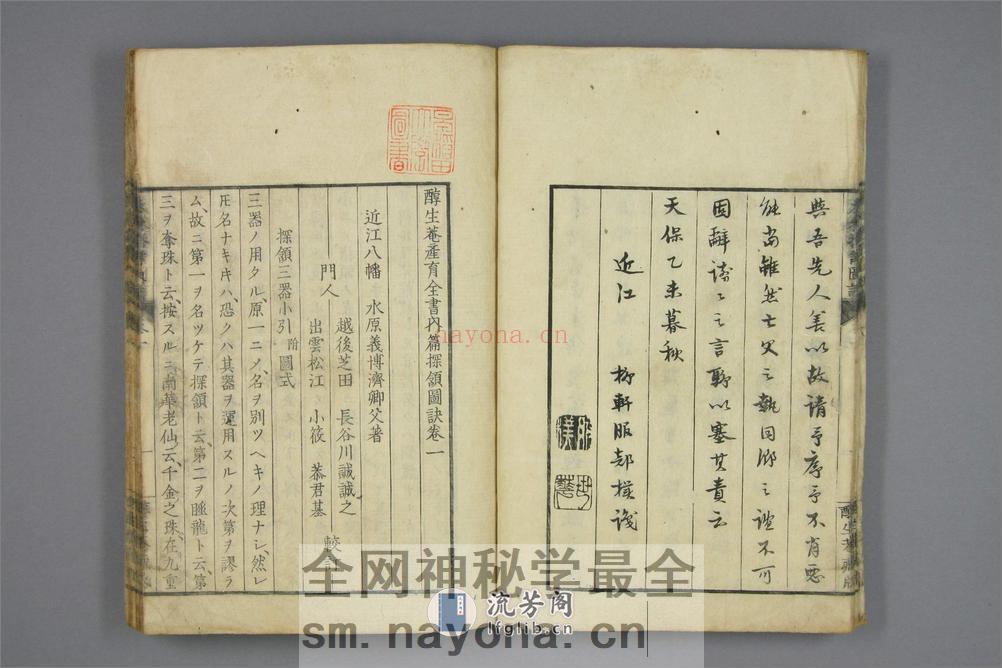 與吾先人善以故請予序予不肖惡
能當雖然士父之執同鄉之誼不可
固辭誌之言聊以塞其責云
天保乙未暮秋
近江 柳軒服部
醇生菴產育全書內篇探領圖訣卷一
近江八幡 水原義博濟卿父著
門人
越後芝田 長谷川誠誠之
出雲松江 小筱 恭君基
較訂
探領三器小引 附圖式
三器ノ用タル、原一ニメ、名ヲ別ツヘキノ理ナシ、然レ
𪜈名ナキキハ、恐クハ其器ヲ運用スルノ次第ヲ謬ラ
ム、故ニ第一ヲ名ツケテ探領ト云、第二ヲ睡龍ト云、第
三ヲ奪珠ト云、按スルニ南華老仙云、千金之珠在九重
nayona.cn
全网神秘学最全
流芳阁
lfglib.cn
sm.nayona.cn